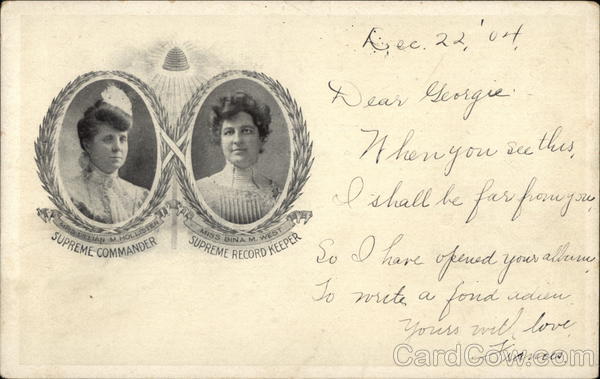 Dec. 22, '04
Dear Georgie.
When you see this,
I shall be far from you,
So I have opened your album
To write a fond adieu.
Yours with love
MRS. LILLIAN M. HOLLISTER
SUPREME COMMANDER
MISS BINA M. WEST
SUPREME RECORD KEEPER
CardCow.com